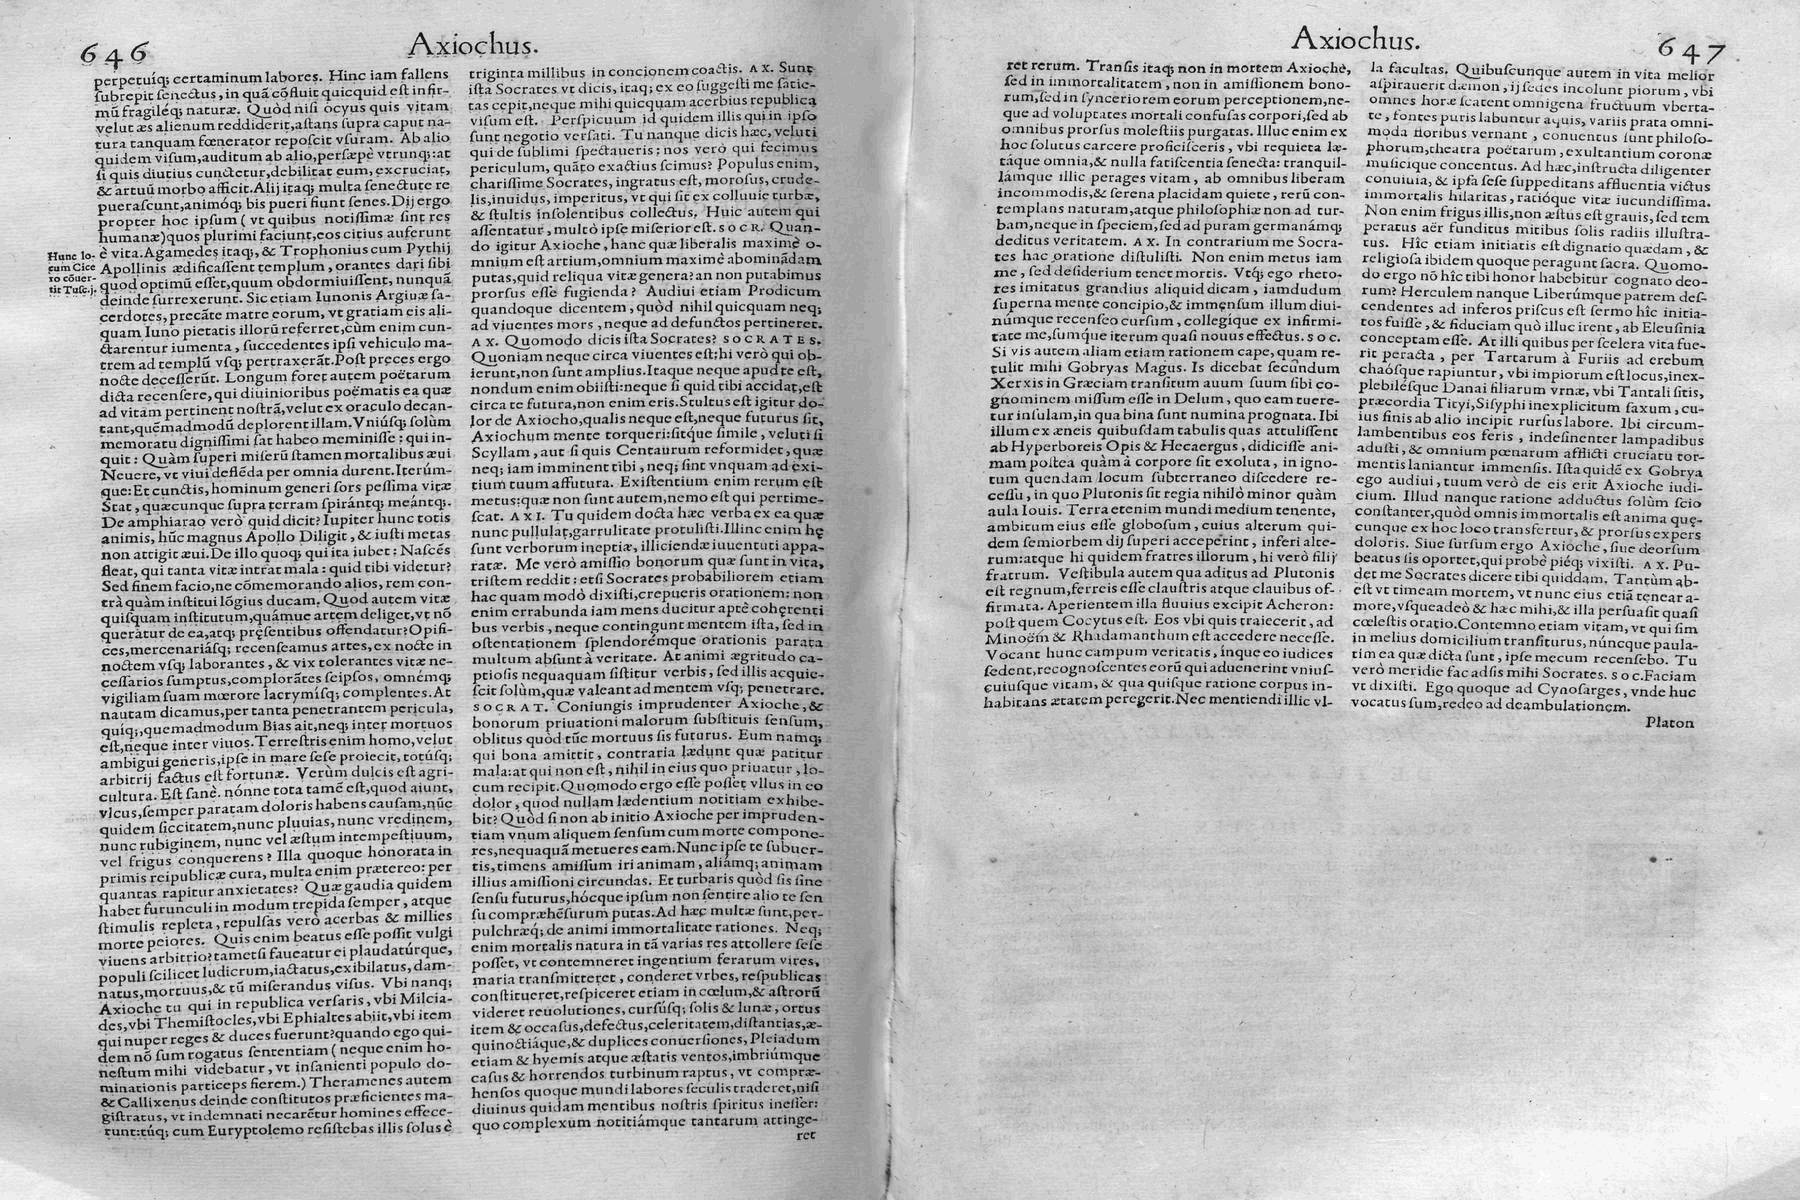 646
Axiochus.
perpetuíq; certaminum labores. Hinc iam fallens
subrepit senectus, in quã cõfluit quicquid est infir-
mũ fragiléq; naturæ. Quòd nisi ocyus quis vitam
velut æs alienum reddiderit, astans supra caput na-
tura tanquam fœnerator reposcit vsuram. Ab alio
quidem visum, auditum ab alio, persæpè vtrunq;: at
si quis diutius cunctetur, debilitat eum, excruciat,
& artuũ morbo afficit. Alij itaq; multa senectute re
puerascunt, animóq; bis pueri fiunt senes. Dij ergo
propter hoc ipsum ( vt quibus notissimæ sint res
humanæ) quos plurimi faciunt, eos citius auferunt
è vita. Agamedes itaq;, & Trophonius cum Pythij
Apollinis ædificassent templum, orantes dari sibi
quod optimũ esset, quum obdormiuissent, nunquã
deinde surrexerunt. Sic etiam Iunonis Argiuæ sa-
cerdotes, precãte matre eorum, vt gratiam eis ali-
quam Iuno pietatis illorũ referret, cùm enim cun-
ctarentur iumenta, succedentes ipsi vehiculo ma-
trem ad templũ vsq; pertraxerãt. Post preces ergo
nocte decesserũt. Longum foret autem poëtarum
dicta recensere, qui diuinioribus poëmatis ea quæ
ad vitam pertinent nostrã, velut ex oraculo decan-
tant, quẽmadmodũ deplorent illam. Vniúsq; solùm
memoratu dignissimi sat habeo meminisse: qui in-
quit: Quàm superi miserũ stamen mortalibus æui
Neuere, vt viui deflẽda per omnia durent. Iterúm-
que: Et cunctis, hominum generi sors pessima vitæ
Stat, quæcunque supra terram spirántq; meántq;.
De amphiarao verò quid dicit? Iupiter hunc totis
animis, hũc magnus Apollo Diligit, & iusti metas
non attigit æui. De illo quoq; qui ita iubet: Nascẽs
fleat, qui tanta vitæ intrat mala: quid tibi videtur?
Sed finem facio, ne cõmemorando alios, rem con-
trà quàm institui lõgius ducam. Quod autem vitæ
quisquam institutum, quámue artem deliget, vt nõ
querãtur de ea, atq; pręsentibus offendatur? Opifi-
ces, mercenariásq; recenseamus artes, ex nocte in
noctem vsq; laborantes, & vix tolerantes vitæ ne-
cessarios sumptus, complorãtes seipsos, omnémq;
vigiliam suam mœrore lacrymísq; complentes. At
nautam dicamus, per tanta penetrantem pericula,
quíq;, quemadmodum Bias ait, neq; inter mortuos
est, neque inter viuos. Terrestris enim homo, velut
ambigui generis, ipse in mare sese proiecit, totúsq;
arbitrij factus est fortunæ. Verùm dulcis est agri-
cultura. Est sanè. nónne tota tamẽ est, quod aiunt,
vlcus, semper paratam doloris habens causam, nũc
quidem siccitatem, nunc pluuias, nunc vredinem,
nunc rubiginem, nunc vel æstum intempestiuum,
vel frigus conquerens? Illa quoque honorata in
primis reipublicæ cura, multa enim prætereo: per
quantas rapitur anxietates? Quæ gaudia quidem
habet furunculi in modum trepida semper, atque
stimulis repleta, repulsas verò acerbas & millies
morte peiores. Quis enim beatus esse possit vulgi
viuens arbitrio? tametsi faueatur ei plaudatúrque,
populi scilicet ludicrum, iactatus, exibilatus, dam-
natus, mortuus, & tũ miserandus visus. Vbi nanq;
Axioche tu qui in republica versaris, vbi Milcia-
des, vbi Themistocles, vbi Ephialtes abiit, vbi item
qui nuper reges & duces fuerunt? quando ego qui-
dem nõ sum rogatus sententiam ( neque enim ho-
nestum mihi videbatur, vt insanienti populo do-
minationis particeps fierem.) Theramenes autem
& Callixenus deinde constitutos præficientes ma-
gistratus, vt indemnati necarẽtur homines effece-
runt: túq; cum Euryptolemo resistebas illis solus è
Hunc lo-
cum Cice
ro cõuer-
tit Tusc. j.
triginta millibus in concionem coactis. AX. Sunt
ista Socrates vt dicis, itaq; ex eo suggesti me satie-
tas cepit, neque mihi quicquam acerbius republica
visum est. Perspicuum id quidem illis qui in ipso
sunt negotio versati. Tu nanque dicis hæc, veluti
qui de sublimi spectaueris: nos verò qui fecimus
periculum, quãto exactius scimus? Populus enim,
charissime Socrates, ingratus est, morosus, crude-
lis, inuidus, imperitus, vt qui sit ex colluuie turbæ,
& stultis insolentibus collectus. Huic autem qui
assentatur, multò ipse miserior est. SOCR. Quan-
do igitur Axioche, hanc quæ liberalis maximè o-
mnium est artium, omnium maximè abominãdam
putas, quid reliqua vitæ genera? an non putabimus
prorsus esse fugienda? Audiui etiam Prodicum
quandoque dicentem, quòd nihil quicquam neq;
ad viuentes mors, neque ad defunctos pertineret.
AX. Quomodo dicis ista Socrates? SOCRATES.
Quoniam neque circa viuentes est: hi verò qui ob-
ierunt, non sunt amplius. Itaque neque apud te est,
nondum enim obiisti: neque si quid tibi accidat, est
circa te futura, non enim eris. Stultus est igitur do-
lor de Axiocho, qualis neque est, neque futurus sit,
Axiochum mente torqueri: sitq́ue simile, veluti si
Scyllam, aut si quis Centaurum reformidet, quæ
neq; iam imminent tibi, neq; sint vnquam ad exi-
tium tuum affutura. Existentium enim rerum est
metus: quæ non sunt autem, nemo est qui pertime-
scat. AXI. Tu quidem docta hæc verba ex ea quæ
nunc pullulat, garrulitate protulisti. Illinc enim hę
sunt verborum ineptiæ, illiciendæ iuuentuti appa-
ratæ. Me verò amissio bonorum quæ sunt in vita,
tristem reddit: etsi Socrates probabiliorem etiam
hac quam modò dixisti, crepueris orationem: non
enim errabunda iam mens ducitur aptè cohęrenti
bus verbis, neque contingunt mentem ista, sed in
ostentationem splendorémque orationis parata
multum absunt à veritate. At animi ægritudo ca-
ptiosis nequaquam sistitur verbis, sed illis acquie-
scit solùm, quæ valeant ad mentem vsq; penetrare.
SOCRAT. Coniungis imprudenter Axioche, &
bonorum priuationi malorum substituis sensum,
oblitus quòd tũc mortuus sis futurus. Eum namq;
qui bona amittit, contraria lædunt quæ patitur
mala: at qui non est, nihil in eius quo priuatur, lo-
cum recipit. Quomodo ergo esse posset vllus in eo
dolor, quod nullam lædentium notitiam exhibe-
bit? Quòd si non ab initio Axioche per impruden-
tiam vnum aliquem sensum cum morte compone-
res, nequaquã metueres eam. Nunc ipse te subuer-
tis, timens amissum iri animam, aliámq; animam
illius amissioni circundas. Et turbaris quòd sis sine
sensu futurus, hócque ipsum non sentire alio te sen
su compræhẽsurum putas. Ad hæc multæ sunt, per-
pulchræq́; de animi immortalitate rationes. Neq;
enim mortalis natura in tã varias res attollere sese
posset, vt contemneret ingentium ferarum vires,
maria transmitteret, conderet vrbes, respublicas
constitueret, respiceret etiam in cœlum, & astrorũ
videret reuolutiones, cursúsq; solis & lunæ, ortus
item & occasus, defectus, celeritatem, distantias, æ-
quinoctiáque, & duplices conuersiones, Pleiadum
etiam & hyemis atque æstatis ventos, imbriúmque
casus & horrendos turbinum raptus, vt compræ-
hensos quoque mundi labores seculis traderet, nisi
diuinus quidam mentibus nostris spiritus inesset:
quo complexum notitiámque tantarum attinge-
ret
Axiochus.
647
ret rerum. Transis itaq; non in mortem Axioche,
sed in immortalitatem, non in amissionem bono-
rum, sed in synceriorem eorum perceptionem, ne-
que ad voluptates mortali confusas corpori, sed ab
omnibus prorsus molestiis purgatas. Illuc enim ex
hoc solutus carcere proficisceris, vbi requieta læ-
táque omnia, & nulla fatiscentia senecta: tranquil-
lámque illic perages vitam, ab omnibus liberam
incommodis, & serena placidam quiete, rerũ con-
templans naturam, atque philosophiæ non ad tur-
bam, neque in speciem, sed ad puram germanámq;
deditus veritatem. AX. In contrarium me Socra-
tes hac oratione distulisti. Non enim metus iam
me, sed desiderium tenet mortis. Vtq́; ego rheto-
res imitatus grandius aliquid dicam, iamdudum
superna mente concipio, & immensum illum diui-
númque recenseo cursum, collegíque ex infirmi-
tate me, sumq́ue iterum quasi nouus effectus. SOC.
Si vis autem aliam etiam rationem cape, quam re-
tulit mihi Gobryas Magus. Is dicebat secundum
Xerxis in Græciam transitum auum suum sibi co-
gnominem missum esse in Delum, quo eam tuere-
tur insulam, in qua bina sunt numina prognata. Ibi
illum ex æneis quibusdam tabulis quas attulissent
ab Hyperboreis Opis & Hecaergus, didicisse ani-
mam postea quàm à corpore sit exoluta, in igno-
tum quendam locum subterraneo discedere re-
cessu, in quo Plutonis sit regia nihilò minor quàm
aula Iouis. Terra etenim mundi medium tenente,
ambitum eius esse globosum, cuius alterum qui-
dem semiorbem dij superi acceperint, inferi alte-
rum: atque hi quidem fratres illorum, hi verò filij
fratrum. Vestibula autem qua aditus ad Plutonis
est regnum, ferreis esse claustris atque clauibus of-
firmata. Aperientem illa fluuius excipit Acheron:
post quem Cocytus est. Eos vbi quis traiecerit, ad
Minoëm & Rhadamanthum est accedere necesse.
Vocant hunc campum veritatis, inque eo iudices
sedent, recognoscentes eorũ qui aduenerint vnius-
cuiusque vitam, & qua quisque ratione corpus in-
habitans ætatem peregerit. Nec mentiendi illic vl-
la facultas. Quibuscunque autem in vita melior
aspirauerit dæmon, ij sedes incolunt piorum, vbi
omnes horæ scatent omnigena fructuum vberta-
te, fontes puris labuntur aquis, variis prata omni-
moda floribus vernant, conuentus sunt philoso-
phorum, theatra poëtarum, exultantium coronæ
musicique concentus. Ad hæc, instructa diligenter
conuiuia, & ipsa sese suppeditans affluentia victus
immortalis hilaritas, ratióque vitæ iucundissima.
Non enim frigus illis, non æstus est grauis, sed tem
peratus aër funditus mitibus solis radiis illustra-
tus. Hîc etiam initiatis est dignatio quædam, &
religiosa ibidem quoque peragunt sacra. Quomo-
do ergo nõ hîc tibi honor habebitur cognato deo-
rum? Herculem nanque Liberúmque patrem des-
cendentes ad inferos priscus est sermo hîc initia-
tos fuisse, & fiduciam quò illuc irent, ab Eleusinia
conceptam esse. At illi quibus per scelera vita fue-
rit peracta, per Tartarum à Furiis ad erebum
chaósque rapiuntur, vbi impiorum est locus, inex-
plebilésque Danai filiarum vrnæ, vbi Tantali sitis,
præcordia Tityi, Sisyphi inexplicitum saxum, cu-
ius finis ab alio incipit rursus labore. Ibi circum-
lambentibus eos feris, indesinenter lampadibus
adusti, & omnium pœnarum afflicti cruciatu tor-
mentis laniantur immensis. Ista quidẽ ex Gobrya
ego audiui, tuum verò de eis erit Axioche iudi-
cium. Illud nanque ratione adductus solùm scio
constanter, quòd omnis immortalis est anima quę-
cunque ex hoc loco transfertur, & prorsus expers
doloris. Siue sursum ergo Axioche, siue deorsum
beatus sis oportet, qui probè piéq; vixisti. AX. Pu-
det me Socrates dicere tibi quiddam. Tantùm ab-
est vt timeam mortem, vt nunc eius etiã tenear a-
more, vsqueadeò & hæc mihi, & illa persuasit quasi
cœlestis oratio. Contemno etiam vitam, vt qui sim
in melius domicilium transiturus, núncque paula-
tim ea quæ dicta sunt, ipse mecum recensebo. Tu
verò meridie fac adsis mihi Socrates. SOC. Faciam
vt dixisti. Ego quoque ad Cynosarges, vnde huc
vocatus sum, redeo ad deambulationem.
Platon